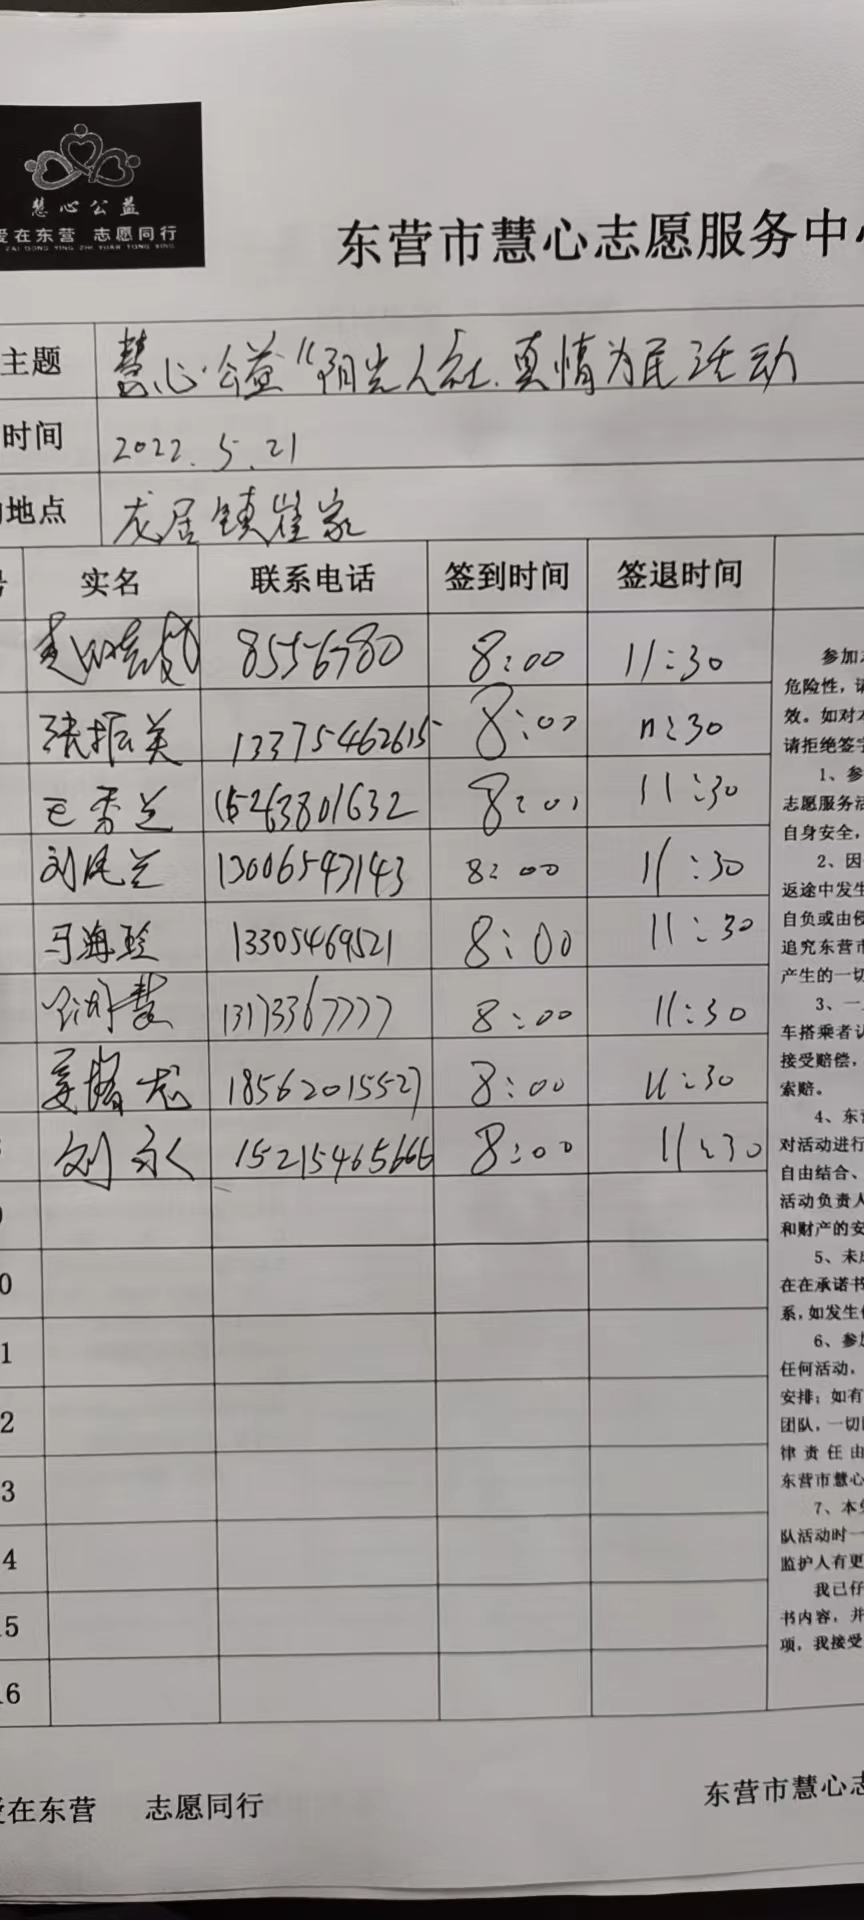 慧心公益
爱在东营 志愿同行
ZAI DONG YING ZHI YUAN TONG XING
东营市慧心志愿服务中心
主题 慧心公益“阳光人社.真情为民活动
时间 2022.5.21
地点 龙居镇崔家
实名 联系电话 签到时间 签退时间
8556780 8:00 11:30
张振英 13375462615 8:00 11:30
王秀兰 15263801632 8:00 11:30
刘凤兰 13006547143 8:00 11:30
马海珍 13305469521 8:00 11:30
慧 13173367777 8:00 11:30
姜 18562015527 8:00 11:30
刘永 15215465666 8:00 11:30
0
1
2
3
4
15
16
参加
危险性，请
效。如对本
请拒绝签字
1、参
志愿服务活
自身安全，
2、因
返途中发生
自负或由侵
追究东营市
产生的一切
3、一
车搭乘者认
接受赔偿，
索赔。
4、东营
对活动进行
自由结合、
活动负责人
和财产的安
5、未成
在在承诺书
系，如发生
6、参加
任何活动，
安排；如有
团队，一切
律责任由
东营市慧心
7、本
队活动时一
监护人有更
我已仔
书内容，并
项，我接受
爱在东营 志愿同行
东营市慧心志